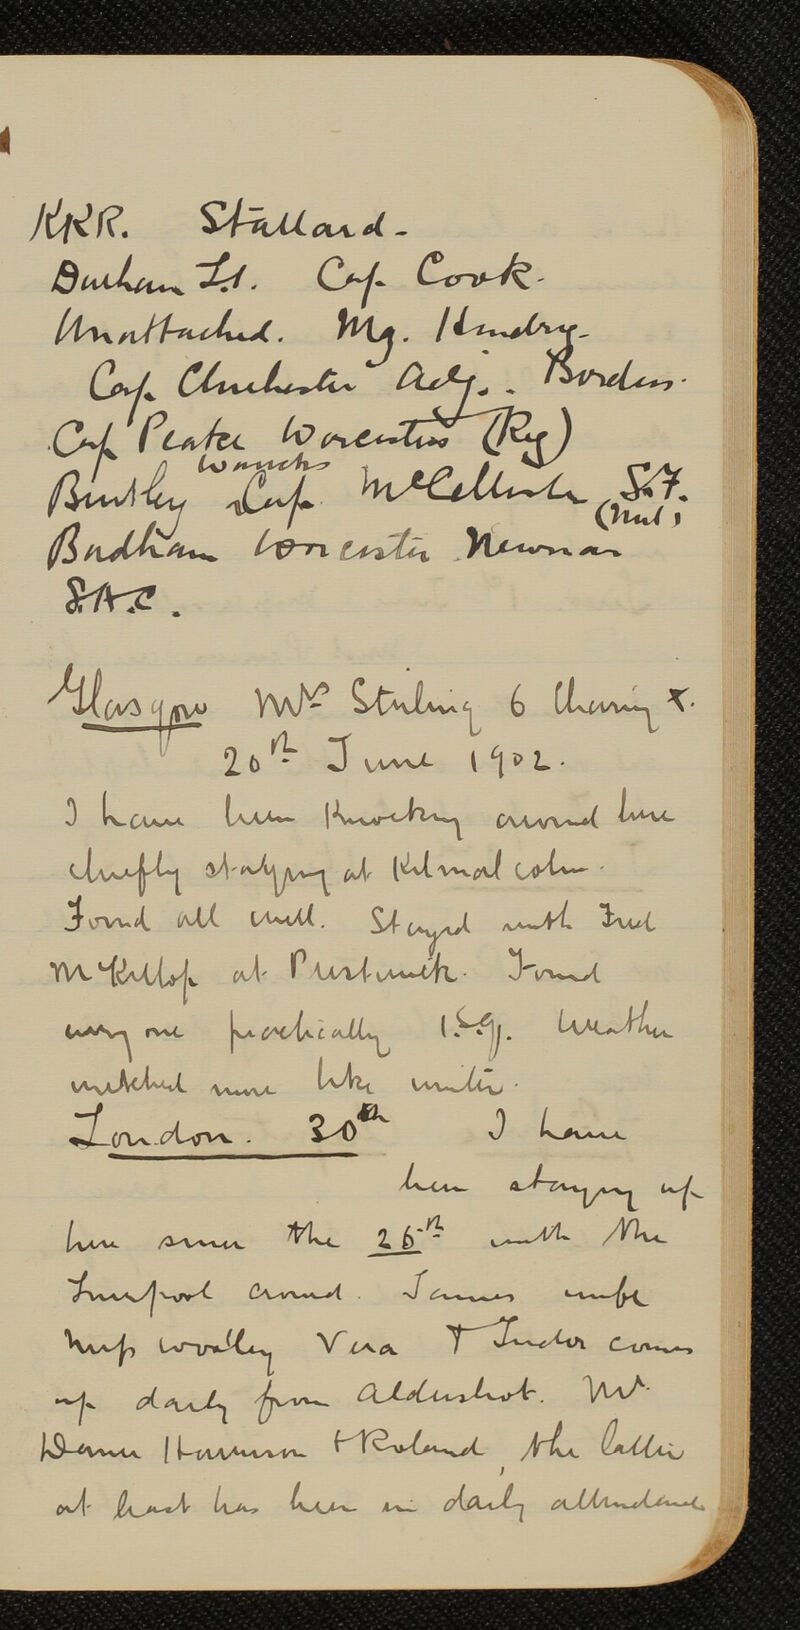 KRR. Stallard -
Durham L.I. Cap. Cook.
Unattached. Mg. Hendry -
Cap Chichester Adj. . Borders.
Cap Peake Worcesters (Reg)
Warwicks
Bentley Cap. McCallister S.F.
(Mil)
Badham Worcester Newman
S.A.C.
Glasgow Mrs Stirling 6 Charing X.
20th June 1902.
I have been Knocking around here
chiefly staying at Kilmalcolm.
Found all well. Stayed with Fred
McKillop at Prestwick. Found
every one practically I.S.Q. Weather
wretched more like winter.
London. 30th I have
been staying up
here since the 26th with the
Liverpool crowd. James wife
Miss Woolley Vera + Tudor comes
up daily from Aldershot. Mr.
Harrison + Roland, the latter
at least has been in daily attendance